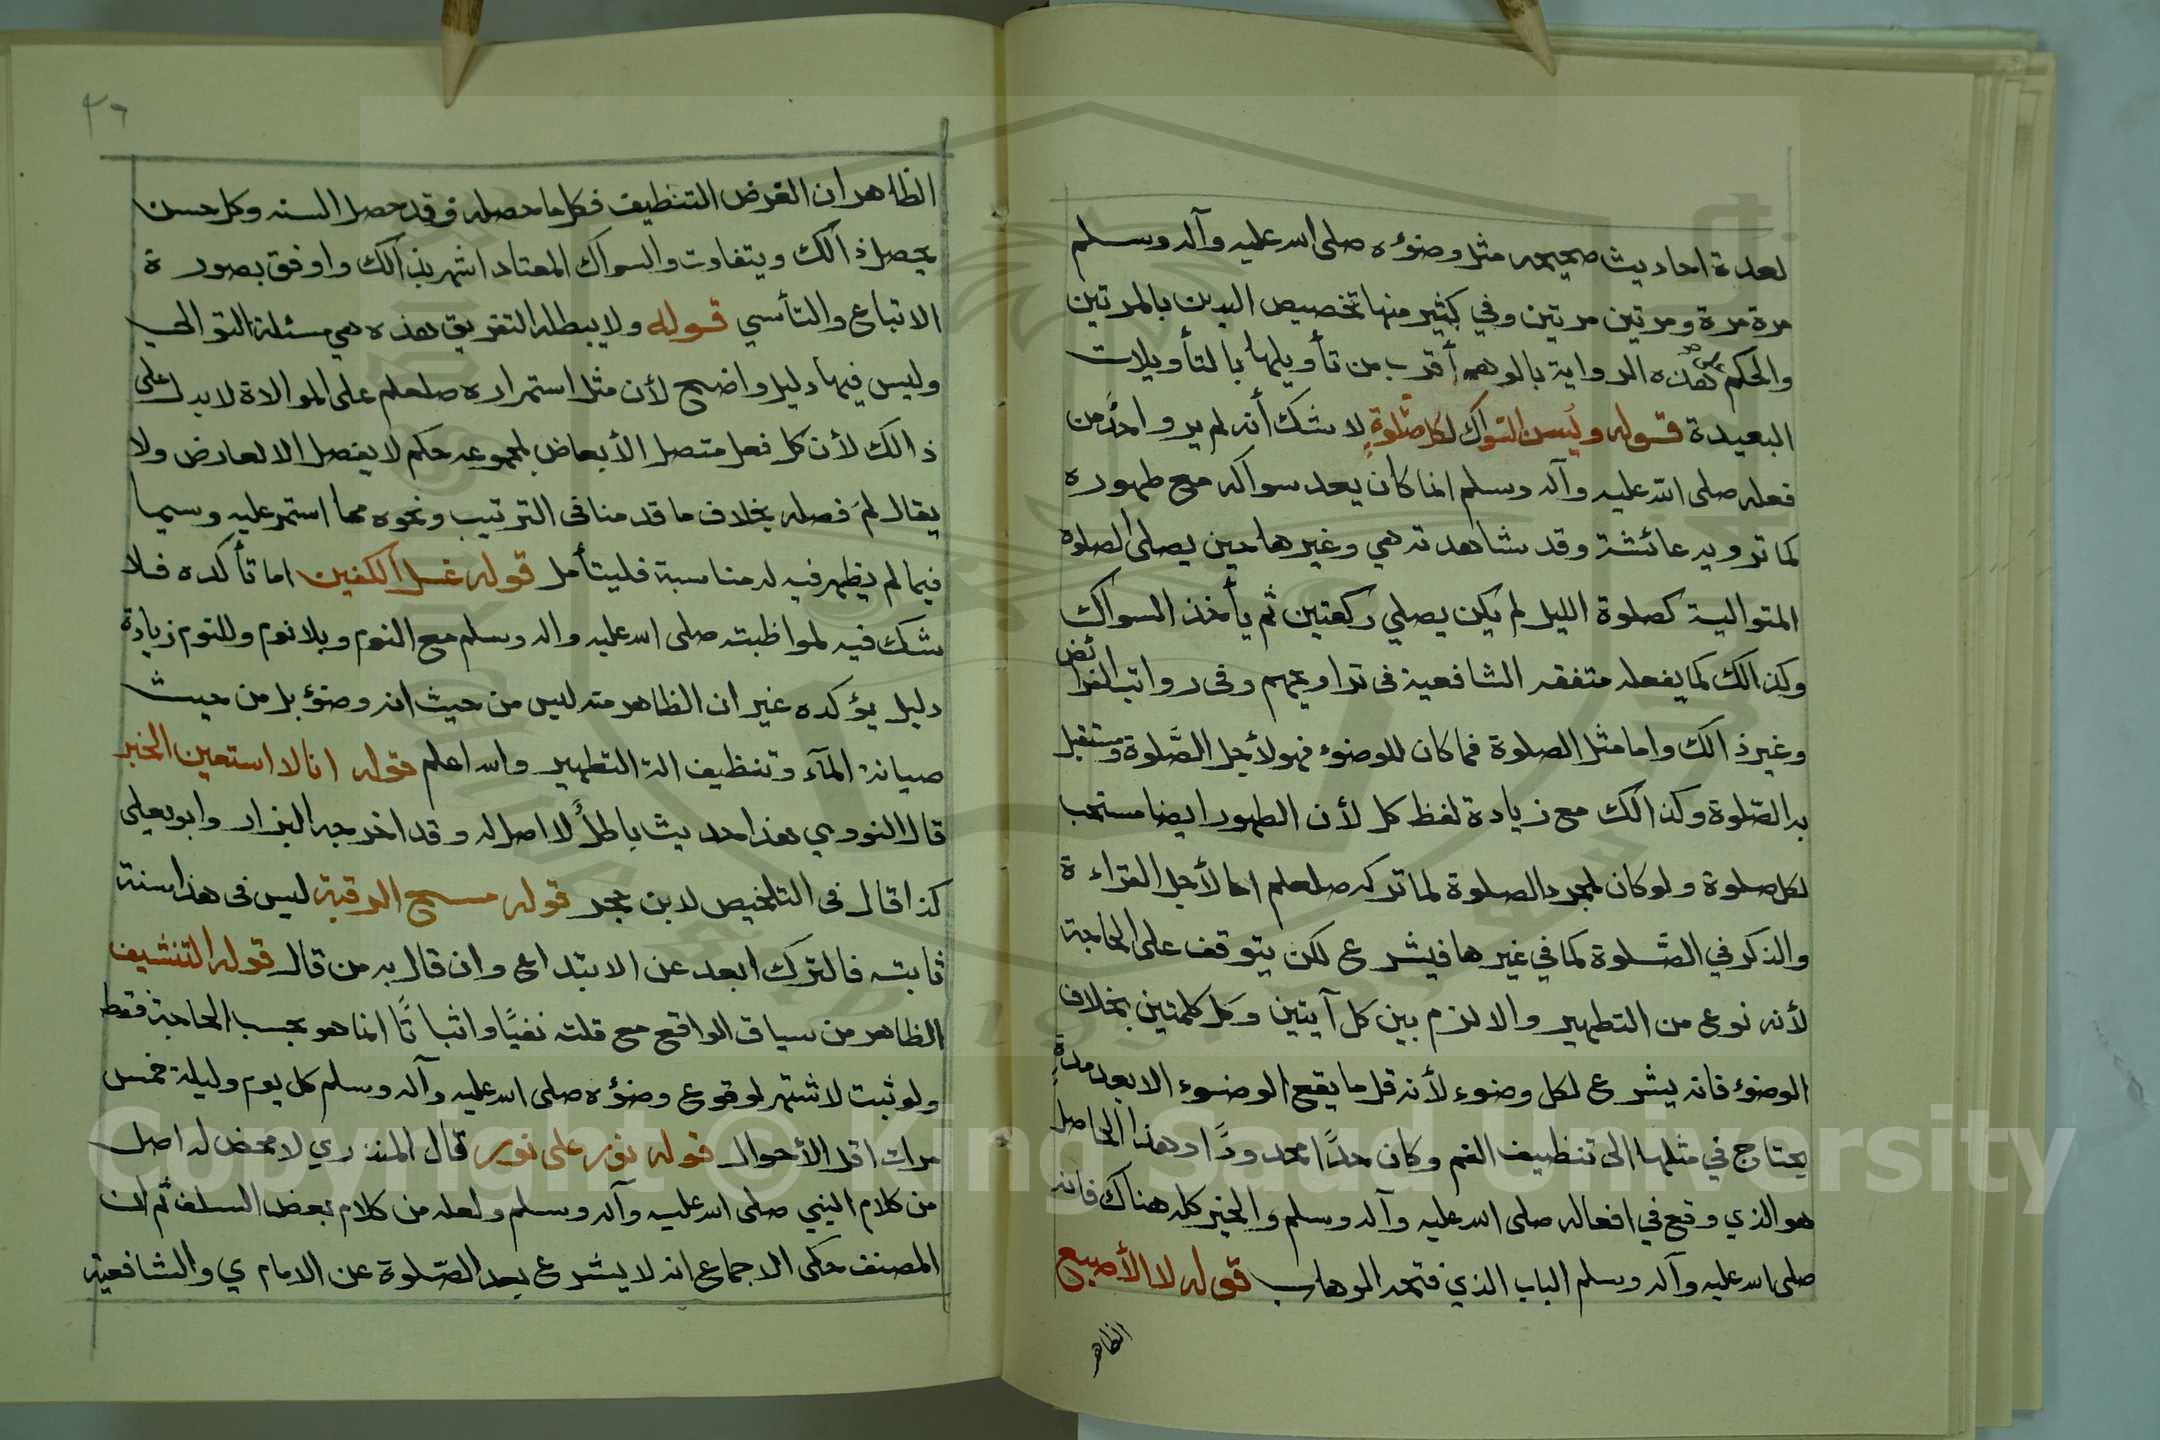 لعدة احاديث صحيحه مثل وضوٌه صلى الله عليه وآله وسلم
مرة مرة ومرتين مرتين وفي كثير منها تخصيص اليدين بالمرتين
والحكم على هذه الرواية بالوهم أقرب من تأويلها بالتأويلات
البعيدة قوله ويُسن السّواك لكل صلوةٍ لا شك أنه لم يرو احدٌ من
فعله صلى الله عليه وآله وسلم انما كان يعد سواكه مع طهوره
كما ترويه عائشة وقد شاهدته هي وغيرها حين يصلى الصلوة
المتوالية كصلوة الليل لم يكن يصلي ركعتين ثم يأخذ السواك
وكذالك كما يفعله متفقه الشافعية فى تراويحهم وفى رواتب الفرائض
وغير ذالك واما مثل الصلوة فما كان للوضوء فهو لأجل الصَّلوة ومستقبل
به الصّلوة وكذالك مع زيادة لفظ كل لأن الطهور ايضا مستحب
لكل صلوة ولو كان لمجرد الصلوة لما تركه صلعلم اما لأجل القراءة
والذكر في الصَّلوة كما في غيرها فيشرع لكن يتوقف على الحاجة
لأنه نوع من التطهير والا لزم بين كل آيتين وكل كلمتين بخلاف
الوضوٌ فانه يشرع لكل وضوء لأنه قل ما يقع الوضوء الا بعد مدةٍ
يحتاج في مثلها الى تنظيف الفم وكان حدًا محدودًا وهذا الحاصل
هو الذي وقع في افعاله صلى الله عليه وآله وسلم والخير كله هناك فانه
صلى الله عليه وآله وسلم الباب الذي فتحه الوهاب قوله لا الأصبع
الظاهر
٢٦
الظاهر ان الغرض التنظيف فكل ما حصله فقد حصل السنه وكل حسن
يحصل ذالك ويتفاوت والسواك المعتاد اشهر بذالك واوفق بصورة
الاتباع والتأسي قوله ولا يبطله التفريق هذه هي مسئلة التوالي
وليس فيها دليل واضح لأن مثل استمراره صلعلم على الموالاة لا يدل على
ذالك لأن كل فعل متصل الأبعاض لمجموعه حكم لا يفصل الا لعارض ولا
يقال لم فصله بخلاف ما قدمنا فى الترتيب ونحوه مما استمر عليه وسيما
فيما لم يظهر فيه له مناسبة فليتأمل قوله غسل الكفين اما تأكده فلا
شك فيه لمواظبته صلى الله عليه واله وسلم مع النوم وبلا نوم وللنوم زيادة
دليل يؤكده غير ان الظاهر منه ليس من حيث انه وضوٌ بل من حيث
صيانة المآء وتنظيف الة التطهير والله اعلم قوله انا لا استعين الخبر
قال النووي هذا حديث باطلٌ لا اصل له وقد اخرجه البزار وابو يعلى
كذا قال فى التلخيص لابن حجر قوله مسح الرقبة ليس فى هذا سنة
ثابته فالترك ابعد عن الابتداع وان قال به من قال قوله التنشيف
الظاهر من سياق الواقع مع قلته نفيًا واثباتًا انما هو بحسب الحاجة فقط
ولو ثبت لاشتهر لوقوع وضوٌه صلى الله عليه وآله وسلم كل يوم وليلة خمس
مرات اقل الأحوال قوله نور على نور قال المنذري لا محض له اصل
من كلام النبي صلى الله عليه وآله وسلم ولعله من كلام بعض السلف ثم ان
المصنف حكى الاجماع انه لا يشرع بعد الصّلوة عن الامام ي والشافعية
Copyright © King Saud University